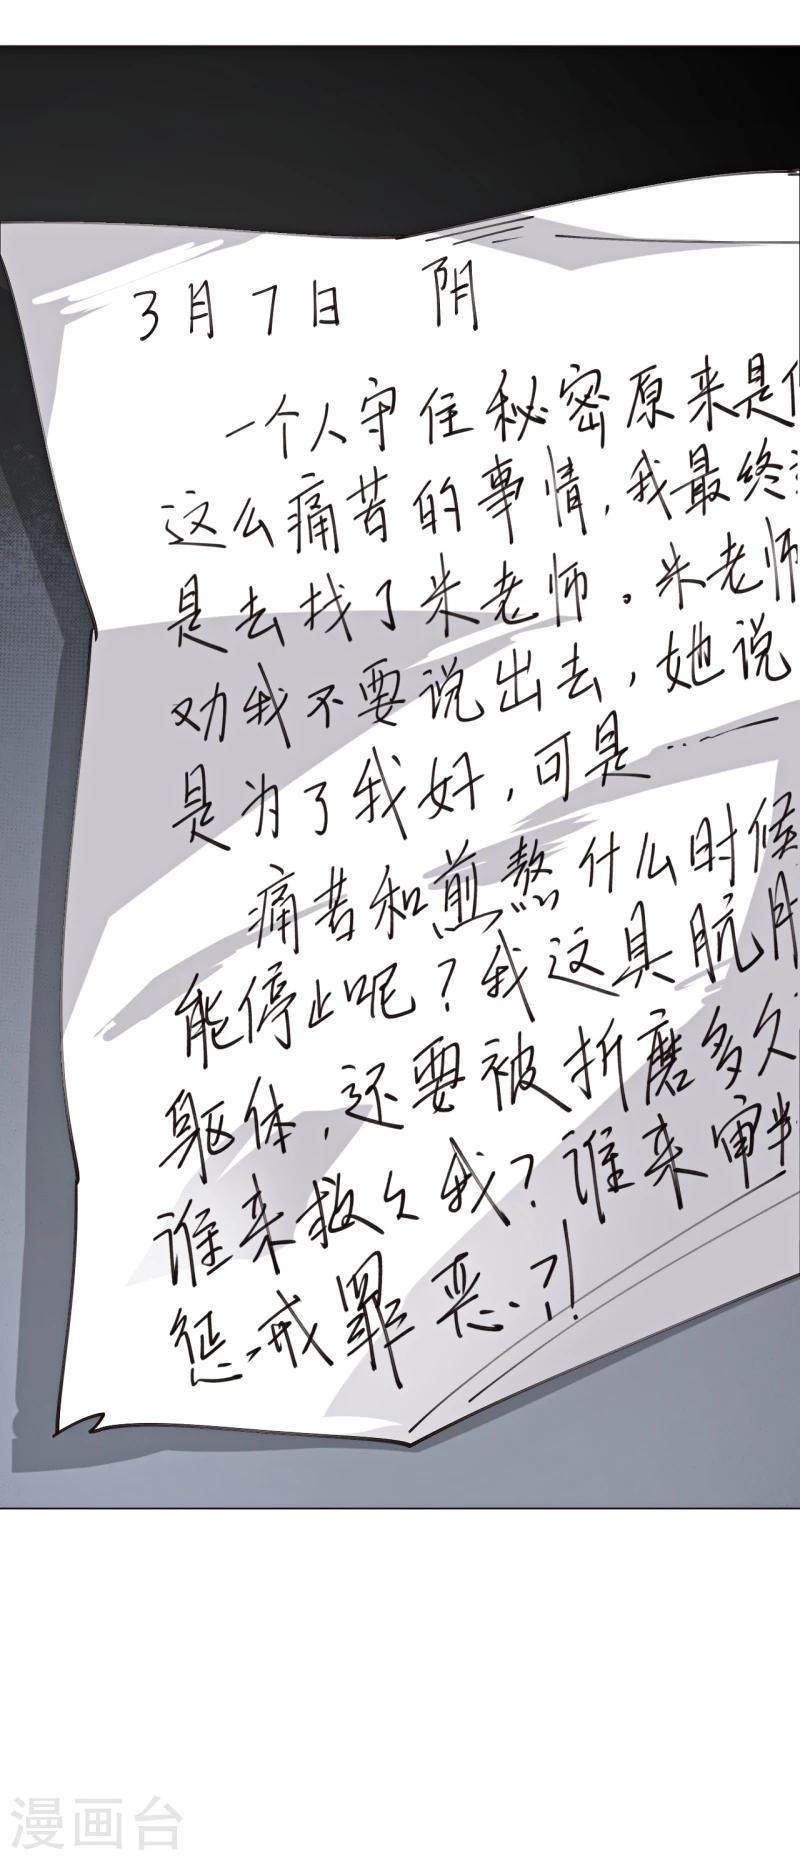 3月7日 阴
一个人守住秘密原来是
这么痛苦的事情，我最终
是去找了朱老师。朱老师
劝我不要说出去，她说
是为了我好，可是……
痛苦和煎熬什么时候
能停止呢？我这具肮
躯体，还要被折磨多久
谁来救救我？谁来审判
惩戒罪恶？！
漫画台